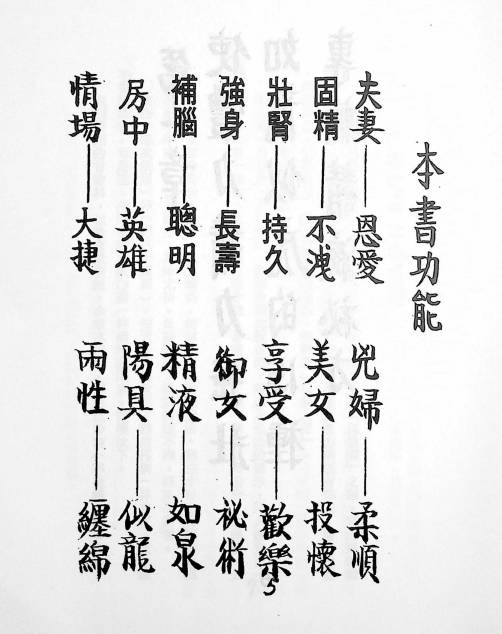 本書功能
夫妻——恩愛 兇婦——柔順
固精——不洩 美女——投懷
壯腎——持久 享受——歡樂
強身——長壽 御女——祕術
補腦——聰明 精液——如泉
房中——英雄 陽具——似龍
情場——大捷 兩性——纏綿
5